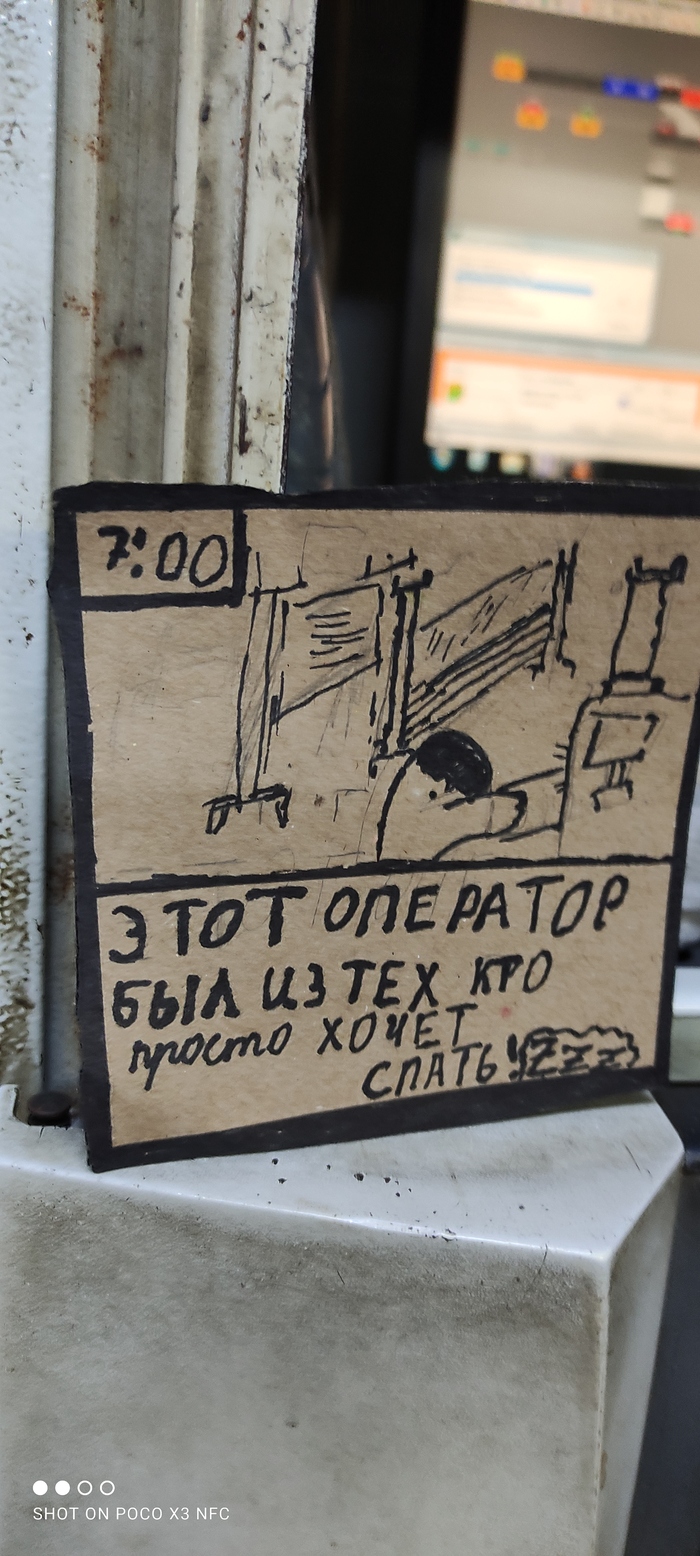 7:00
ЭТОТ ОПЕРАТОР
БЫЛ ИЗ ТЕХ КТО
просто ХОЧЕТ
СПАТЬ! Zzz
SHOT ON POCO X3 NFC